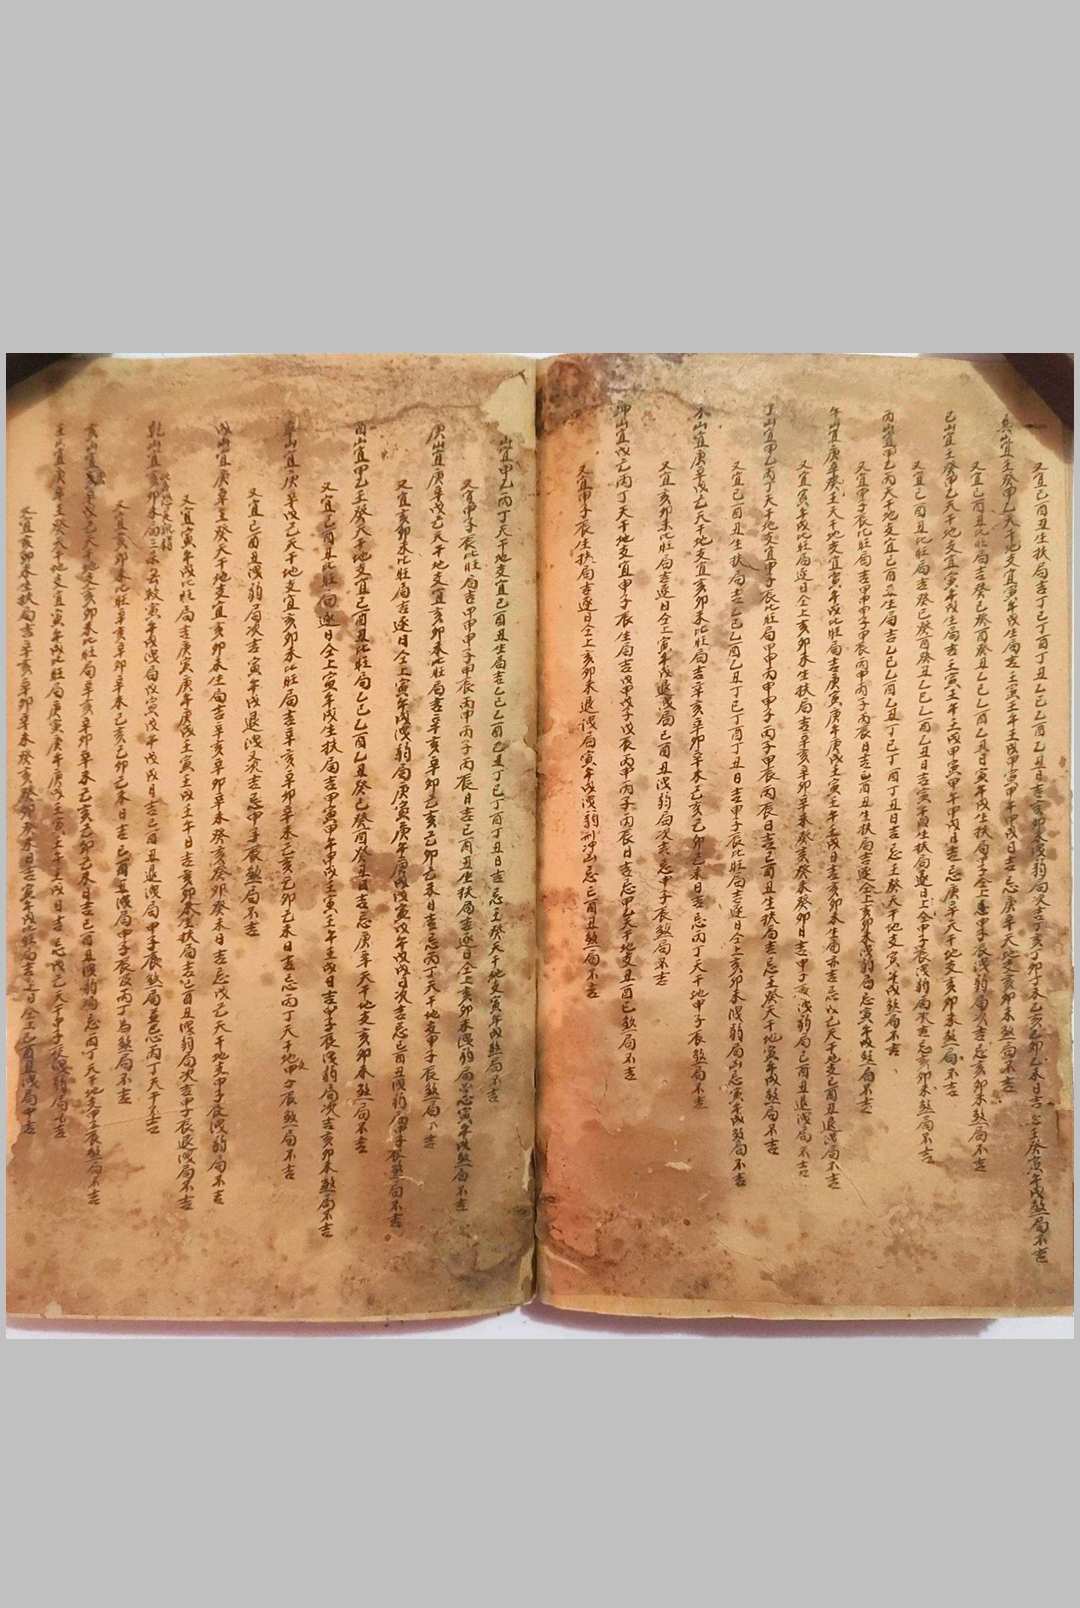 又宜巳酉丑生扶局吉丁巳丁酉丁丑乙巳乙酉乙丑日吉亥卯未洩弱局次吉丁亥丁卯丁未乙亥乙卯乙未日吉忌壬癸寅午戌煞局不吉
巽山宜壬癸甲乙天干地支宜寅午戌生局吉壬寅壬午壬戌甲寅甲午甲戌日吉忌庚辛天地支亥卯未煞局不吉
又宜巳酉丑比旺局吉癸巳癸酉癸丑乙巳乙酉乙丑日寅午戌生扶局
巳山宜壬癸甲乙天干地支宜寅午戌生局吉壬寅壬午壬戌甲寅甲午甲戌日吉忌庚辛天干地支亥卯未煞局不吉
又宜巳酉丑比旺局吉癸巳癸酉癸丑乙巳乙酉乙丑日吉寅午戌生扶局
丙山宜甲乙丙天干地支宜巳酉丑生局吉乙巳乙酉乙丑丁巳丁酉丁丑日吉忌壬癸天干地支寅午戌煞局不吉
又宜甲子辰比旺局吉甲甲甲子甲辰丙甲丙子丙辰日吉巳酉丑生扶局吉
午山宜庚辛癸壬天干地支宜寅午戌比旺局吉庚寅庚午庚戌壬寅壬午壬戌日吉亥卯未生局
又宜寅午戌比旺局逐日仝上亥卯未生扶局吉辛亥辛卯辛未癸亥癸卯癸未日吉
丁山宜甲乙丙丁天干地支宜甲子辰比旺局甲甲丙甲甲子丙子甲辰丙辰日吉巳酉丑生扶局吉忌壬癸天干地寅午戌煞局不吉
又宜巳酉丑生扶局吉乙巳乙酉乙丑丁巳丁酉丁丑日吉甲子辰比旺局吉逐日仝上亥卯未洩弱局
山宜庚辛戊己天干地支宜亥卯未比旺局吉辛亥辛卯辛未己亥己卯己未日吉忌丙丁天干地甲子辰煞局不吉
又宜亥卯未比旺局吉逐日仝上寅午戌退洩局巳酉丑洩弱局次吉忌甲子辰煞局不吉
坤山宜戊己丙丁天干地支宜甲子辰生局吉戊甲戊子戊辰丙甲丙子丙辰日吉忌甲乙天干地支丑酉巳煞局不吉
又宜甲子辰生扶局吉逐日仝上亥卯未退洩局寅午戌洩弱刑冲凶忌巳酉丑煞局不吉
山宜甲乙丙丁天干地支宜巳酉丑生局吉乙巳乙酉乙丑丁巳丁酉丁丑日吉忌壬癸天干地支寅午戌煞局不吉
又宜甲子辰比旺局吉甲甲甲子甲辰丙甲丙子丙辰日吉巳酉丑生扶局吉逐日仝上亥卯未洩弱局
庚山宜庚辛戊己天干地支宜亥卯未比旺局吉辛亥辛卯己亥己卯己未日吉忌丙丁天干地支甲子辰煞局不吉
又宜亥卯未比旺局吉逐日仝上寅午戌洩弱局庚寅庚午庚戌戊寅戊午戊戌日次吉忌巳酉丑洩弱
酉山宜甲乙壬癸天干地支宜巳酉丑比旺局乙巳乙酉乙丑癸巳癸酉癸丑日吉忌庚辛天干地支亥卯未煞局不吉
又宜巳酉丑比旺局逐日仝上寅午戌生扶局吉甲寅甲午甲戌壬寅壬午壬戌日吉甲子辰洩弱局次吉亥卯未煞局不吉
辛山宜庚辛戊己天干地支宜亥卯未比旺局吉辛亥辛卯辛未己亥己卯己未日吉忌丙丁天干地甲子辰煞局不吉
又宜巳酉丑洩弱局次吉寅午戌退洩次吉忌甲子辰煞局不吉
戌山宜庚辛壬癸天干地支宜亥卯未生局吉辛亥辛卯辛未癸亥癸卯癸未日吉忌戊己天干地支甲子辰洩弱局不吉
又宜寅午戌比旺局吉庚寅庚午庚戌壬寅壬戌壬午日吉亥卯未生扶局吉巳酉丑洩弱局次吉甲子辰退洩局不吉
乾山宜亥卯未局寅午戌洩局戊寅戊午戊戌日吉巳酉丑退洩局甲子辰煞局忌丙丁天干不吉
又宜亥卯未比旺辛亥辛卯辛未己亥己卯己未日吉巳酉丑洩局甲子辰及丙丁為煞局不吉
亥山宜辛戊己天干地支亥卯未比旺局辛亥辛卯辛未己亥己卯己未日吉巳酉丑洩弱局忌丙丁天干地支甲子辰煞局不吉
壬山宜庚辛壬癸天干地支宜寅午戌比旺局庚寅庚午庚戌壬寅壬午壬戌日吉忌戊己天干甲子辰洩弱局不吉
又宜亥卯未生扶局吉辛亥辛卯辛未癸亥癸卯癸未日吉寅午戌比旺局吉